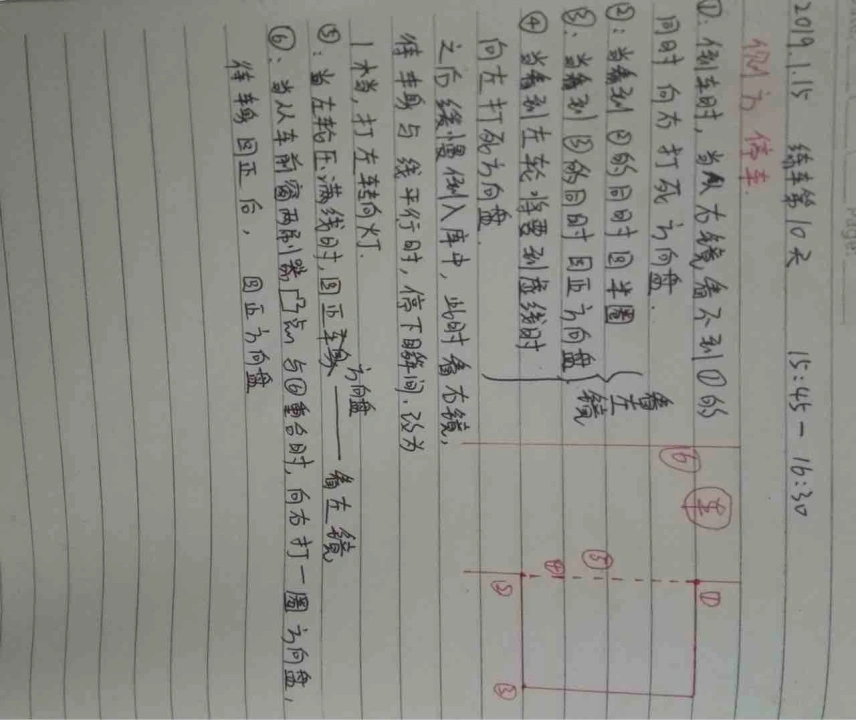 2019.1.15 练车第10天 15:45-16:30
侧方停车.
①: 倒车时, 当从右镜看不到①的
同时 向右打死方向盘.
②: 当看到②的同时回半圈
③: 当看到③的同时回正方向盘
看左镜
④ 当看到左轮将要到虚线时
向左打死方向盘.
之后缓慢倒入库中, 此时看右镜,
待车身与线平行时, 停下瞬间. 改为
1档, 打左转向灯.
⑤: 当左轮压满线时, 回正 方向盘 —— 看左镜
⑥: 当从车前窗两刷器 点与⑥重合时, 向右打一圈方向盘,
待车身回正后, 回正方向盘
⑥
车
①
⑤
④
②
③
Page: